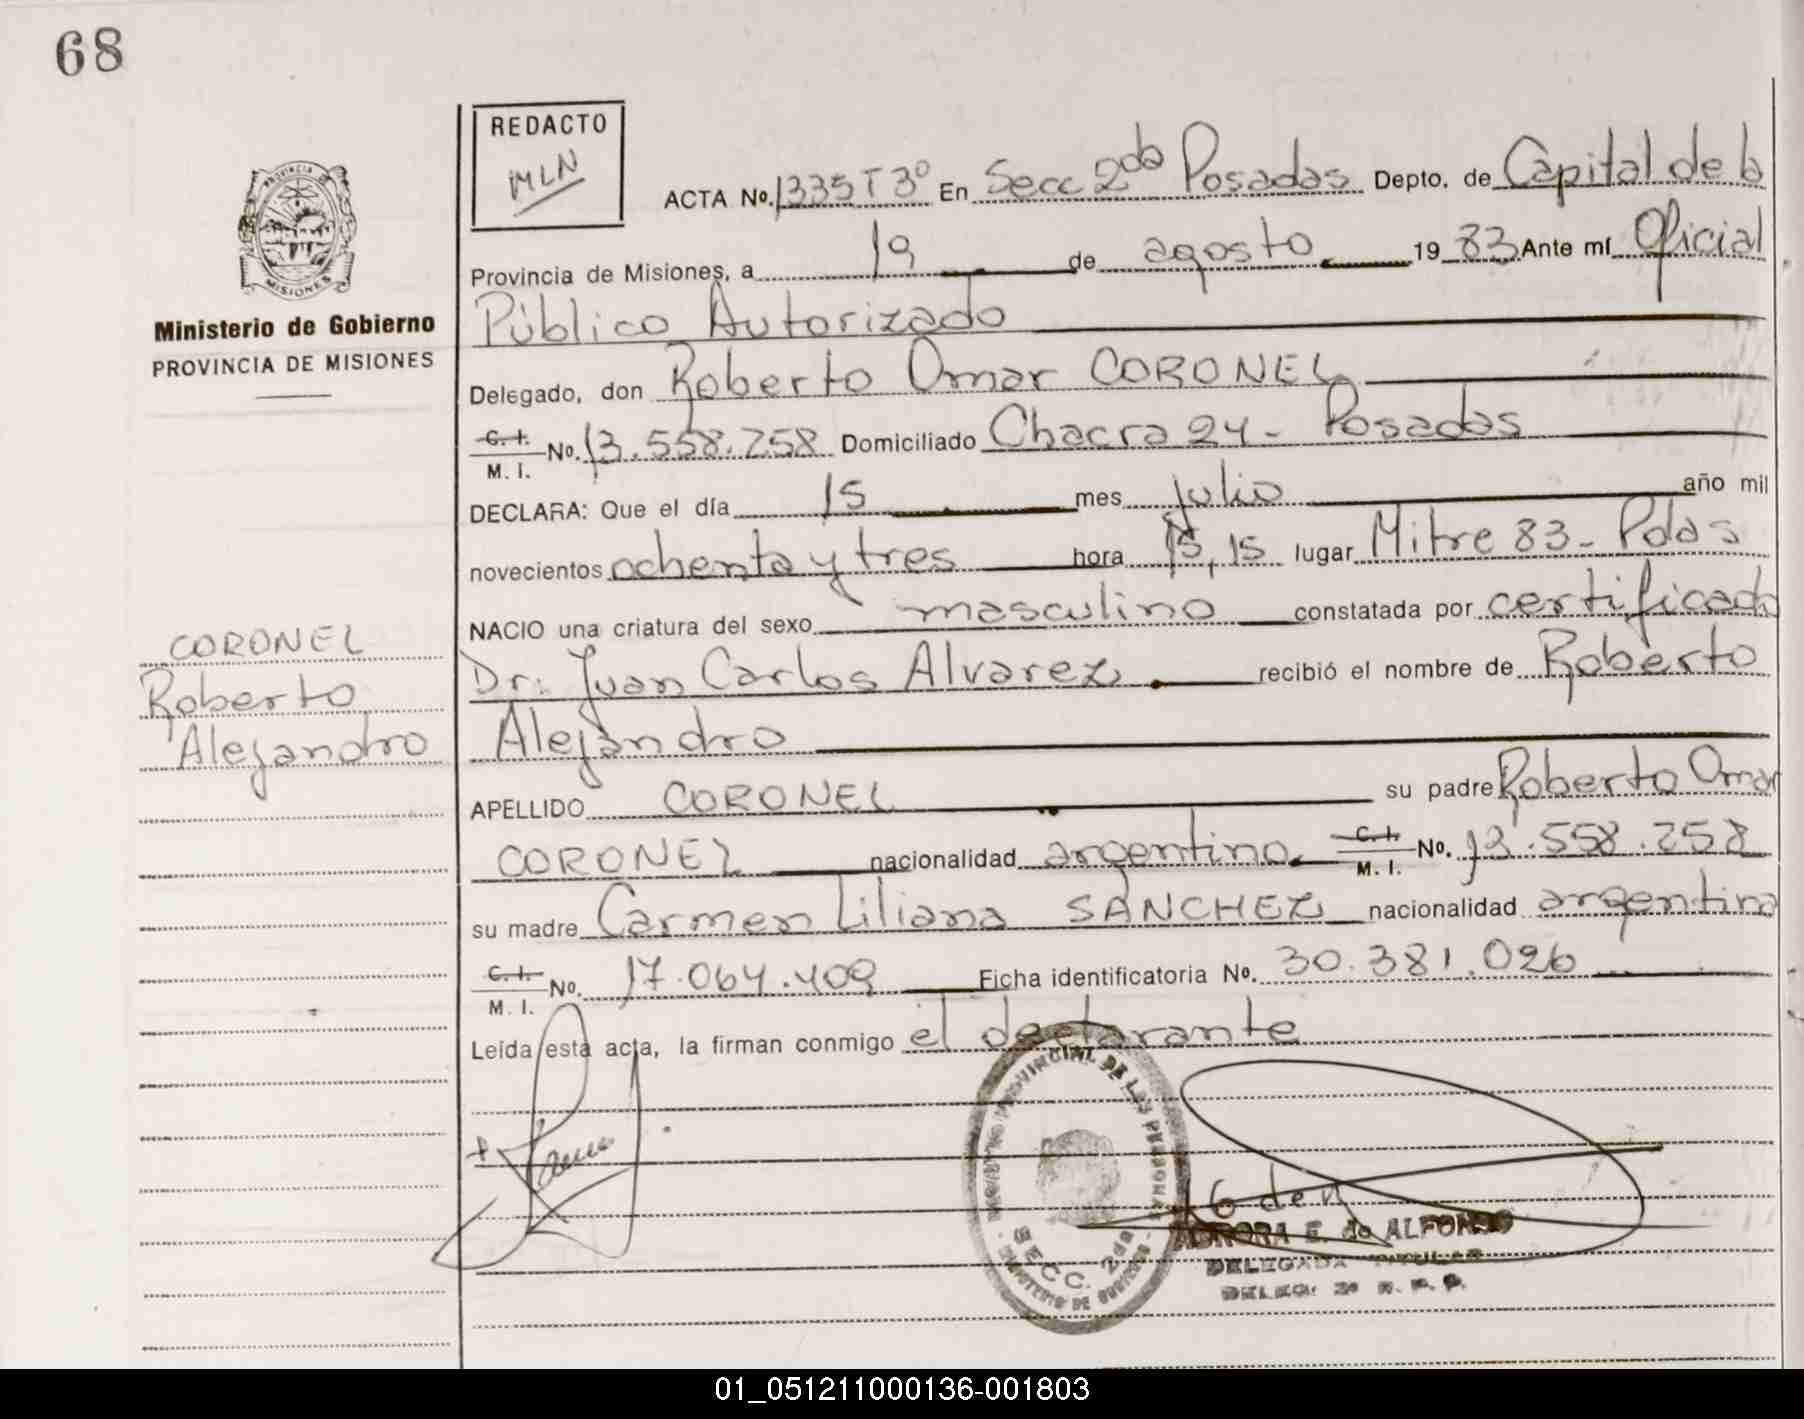 68
REDACTO
MLN
ACTA No. 1335 T 3º En Secc 2da Posadas Depto. de Capital de la
Provincia de Misiones, a 19 de agosto 1983 Ante mí Oficial
Público Autorizado
Delegado, don Roberto Omar CORONEL
C. I. M. I. No. 13.558.258 Domiciliado Chacra 24 - Posadas
DECLARA: Que el día 15 mes julio año mil
novecientos ochenta y tres hora 15,15 lugar Mitre 83 - Pdas
NACIO una criatura del sexo masculino constatada por certificado
Dr: Juan Carlos Alvarez recibió el nombre de Roberto
Alejandro
APELLIDO CORONEL su padre Roberto Omar
CORONEL nacionalidad argentino C. I. M. I. No. 13.558.258
su madre Carmen Liliana SANCHEZ nacionalidad argentina
C. I. M. I. No. 17.064.409 Ficha identificatoria No. 30.381.026
Leída esta acta, la firman conmigo el declarante
PROVINCIA DE
MISIONES
Ministerio de Gobierno
PROVINCIA DE MISIONES
CORONEL
Roberto
Alejandro
PROVINCIAL DE LAS PERSONAS
SECC. 2da
MINISTERIO DE GOBIERNO
E. de ALFONSO
DELEGADA TITULAR
DELEG. 2a R. P. P.
01_051211000136-001803